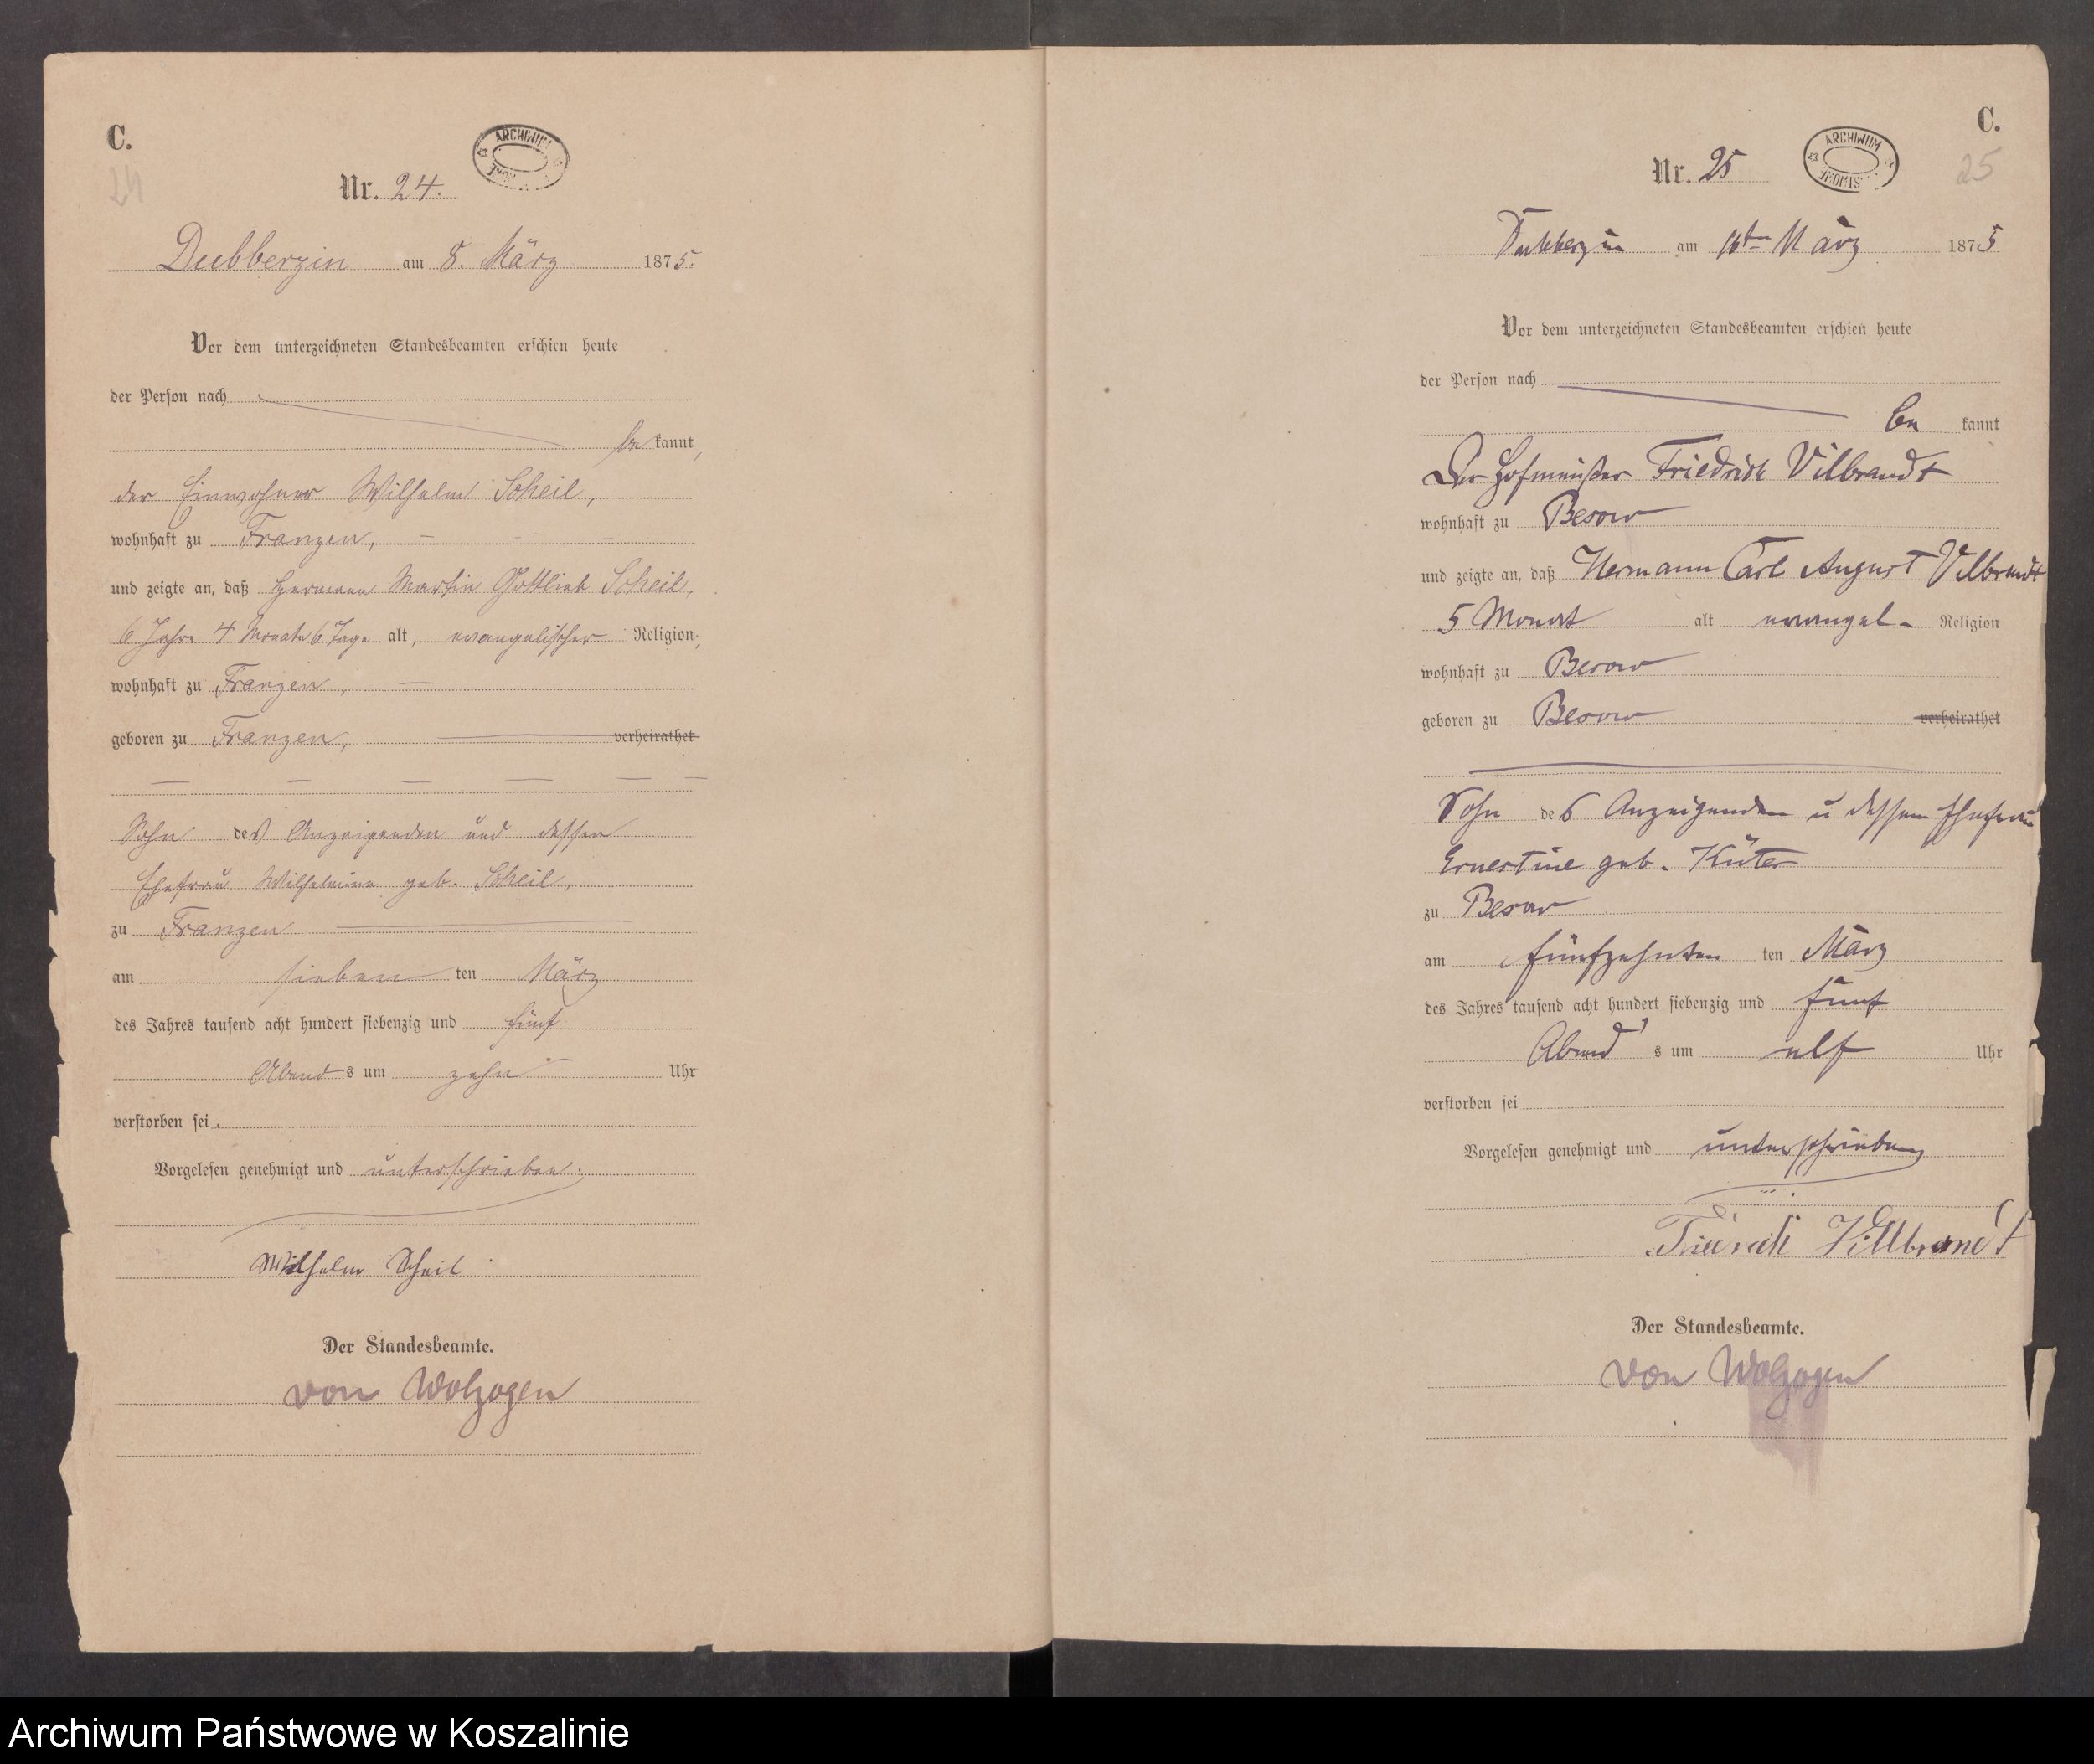 C.
24
ARCHIWUM
Nr. 24.
Dubberzin am 8. März 1875.
Vor dem unterzeichneten Standesbeamten erschien heute
der Person nach
be kannt,
der Einwohner Wilhelm Scheil,
wohnhaft zu Franzen,
und zeigte an, daß Hermann Martin Gottlieb Scheil,
6 Jahre 4 Monate 6 Tage alt, evangelischer Religion,
wohnhaft zu Franzen,
geboren zu Franzen, verheirathet
Sohn des Anzeigenden und dessen
Ehefrau Wilhelmine geb. Scheil,
zu Franzen
am sieben ten März
des Jahres tausend acht hundert siebenzig und fünf
Abend s um zehn Uhr
verstorben sei.
Vorgelesen genehmigt und unterschrieben.
Wilhelm Scheil
Der Standesbeamte.
von Wolzogen
C.
25
ARCHIWUM
Nr. 25
Dubberzin am März 1875
Vor dem unterzeichneten Standesbeamten erschien heute
der Person nach
be kannt
Der Hofmeister Friedrich Vilbrandt
wohnhaft zu Besow
und zeigte an, daß Hermann Carl August Vilbrandt
5 Monat alt evangel. Religion
wohnhaft zu Besow
geboren zu Besow verheirathet
Sohn des Anzeigenden u dessen Ehefrau
Ernestine geb. Küter
zu Besow
am fünfzehnten ten März
des Jahres tausend acht hundert siebenzig und fünf
Abend s um elf Uhr
verstorben sei
Vorgelesen genehmigt und unterschrieben
Villbrandt
Der Standesbeamte.
von Wolzogen
Archiwum Państwowe w Koszalinie